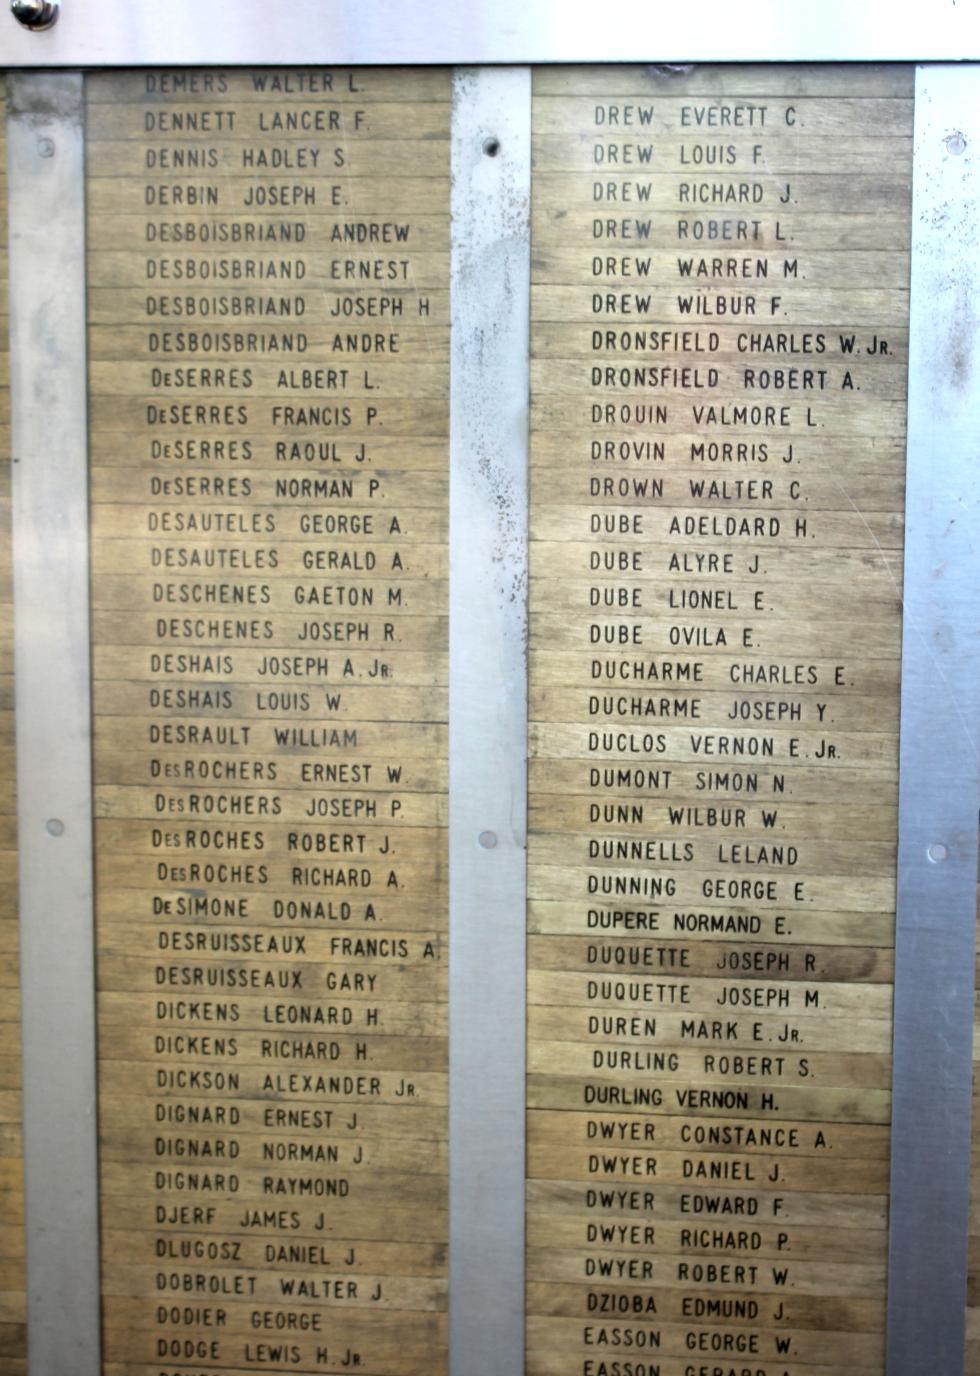 DEMERS WALTER L.
DENNETT LANCER F.
DENNIS HADLEY S.
DERBIN JOSEPH E.
DESBOISBRIAND ANDREW
DESBOISBRIAND ERNEST
DESBOISBRIAND JOSEPH H
DESBOISBRIAND ANDRE
DeSERRES ALBERT L.
DeSERRES FRANCIS P.
DeSERRES RAOUL J.
DeSERRES NORMAN P.
DESAUTELES GEORGE A.
DESAUTELES GERALD A.
DESCHENES GAETON M.
DESCHENES JOSEPH R.
DESHAIS JOSEPH A. JR.
DESHAIS LOUIS W.
DESRAULT WILLIAM
DesROCHERS ERNEST W.
DesROCHERS JOSEPH P.
DesROCHES ROBERT J.
DesROCHES RICHARD A.
DeSIMONE DONALD A.
DESRUISSEAUX FRANCIS A.
DESRUISSEAUX GARY
DICKENS LEONARD H.
DICKENS RICHARD H.
DICKSON ALEXANDER JR.
DIGNARD ERNEST J.
DIGNARD NORMAN J.
DIGNARD RAYMOND
DJERF JAMES J.
DLUGOSZ DANIEL J.
DOBROLET WALTER J.
DODIER GEORGE
DODGE LEWIS H. JR.
DREW EVERETT C.
DREW LOUIS F.
DREW RICHARD J.
DREW ROBERT L.
DREW WARREN M.
DREW WILBUR F.
DRONSFIELD CHARLES W. JR.
DRONSFIELD ROBERT A.
DROUIN VALMORE L.
DROVIN MORRIS J.
DROWN WALTER C.
DUBE ADELDARD H.
DUBE ALYRE J.
DUBE LIONEL E.
DUBE OVILA E.
DUCHARME CHARLES E.
DUCHARME JOSEPH Y.
DUCLOS VERNON E. JR.
DUMONT SIMON N.
DUNN WILBUR W.
DUNNELLS LELAND
DUNNING GEORGE E.
DUPERE NORMAND E.
DUQUETTE JOSEPH R.
DUQUETTE JOSEPH M.
DUREN MARK E. JR.
DURLING ROBERT S.
DURLING VERNON H.
DWYER CONSTANCE A.
DWYER DANIEL J.
DWYER EDWARD F.
DWYER RICHARD P.
DWYER ROBERT W.
DZIOBA EDMUND J.
EASSON GEORGE W.
EASSON GERARD